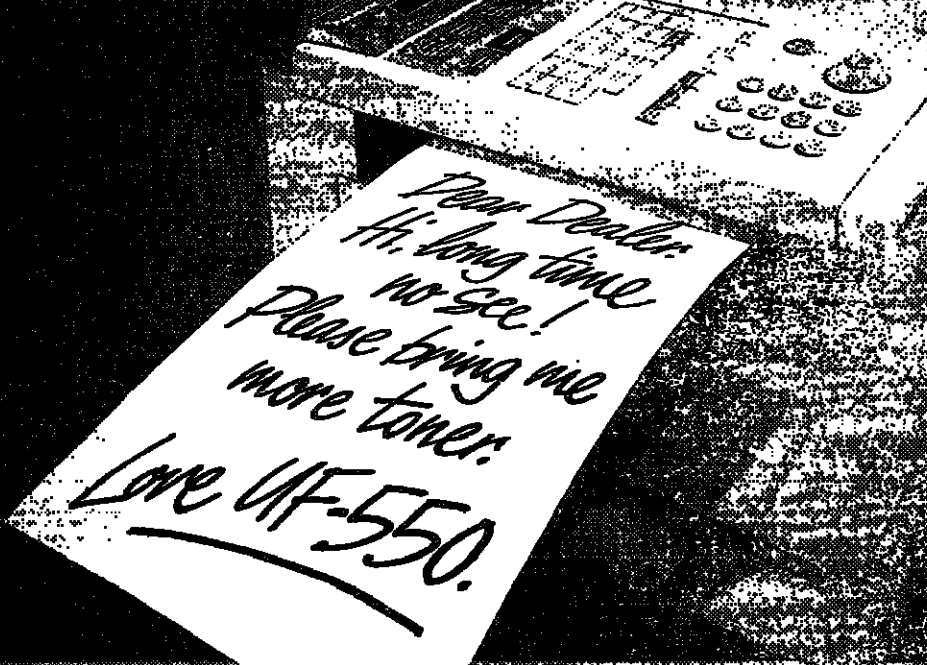 Dear Dealer.
Hi, long time
no see!
Please bring me
more toner.
Love UF-550.